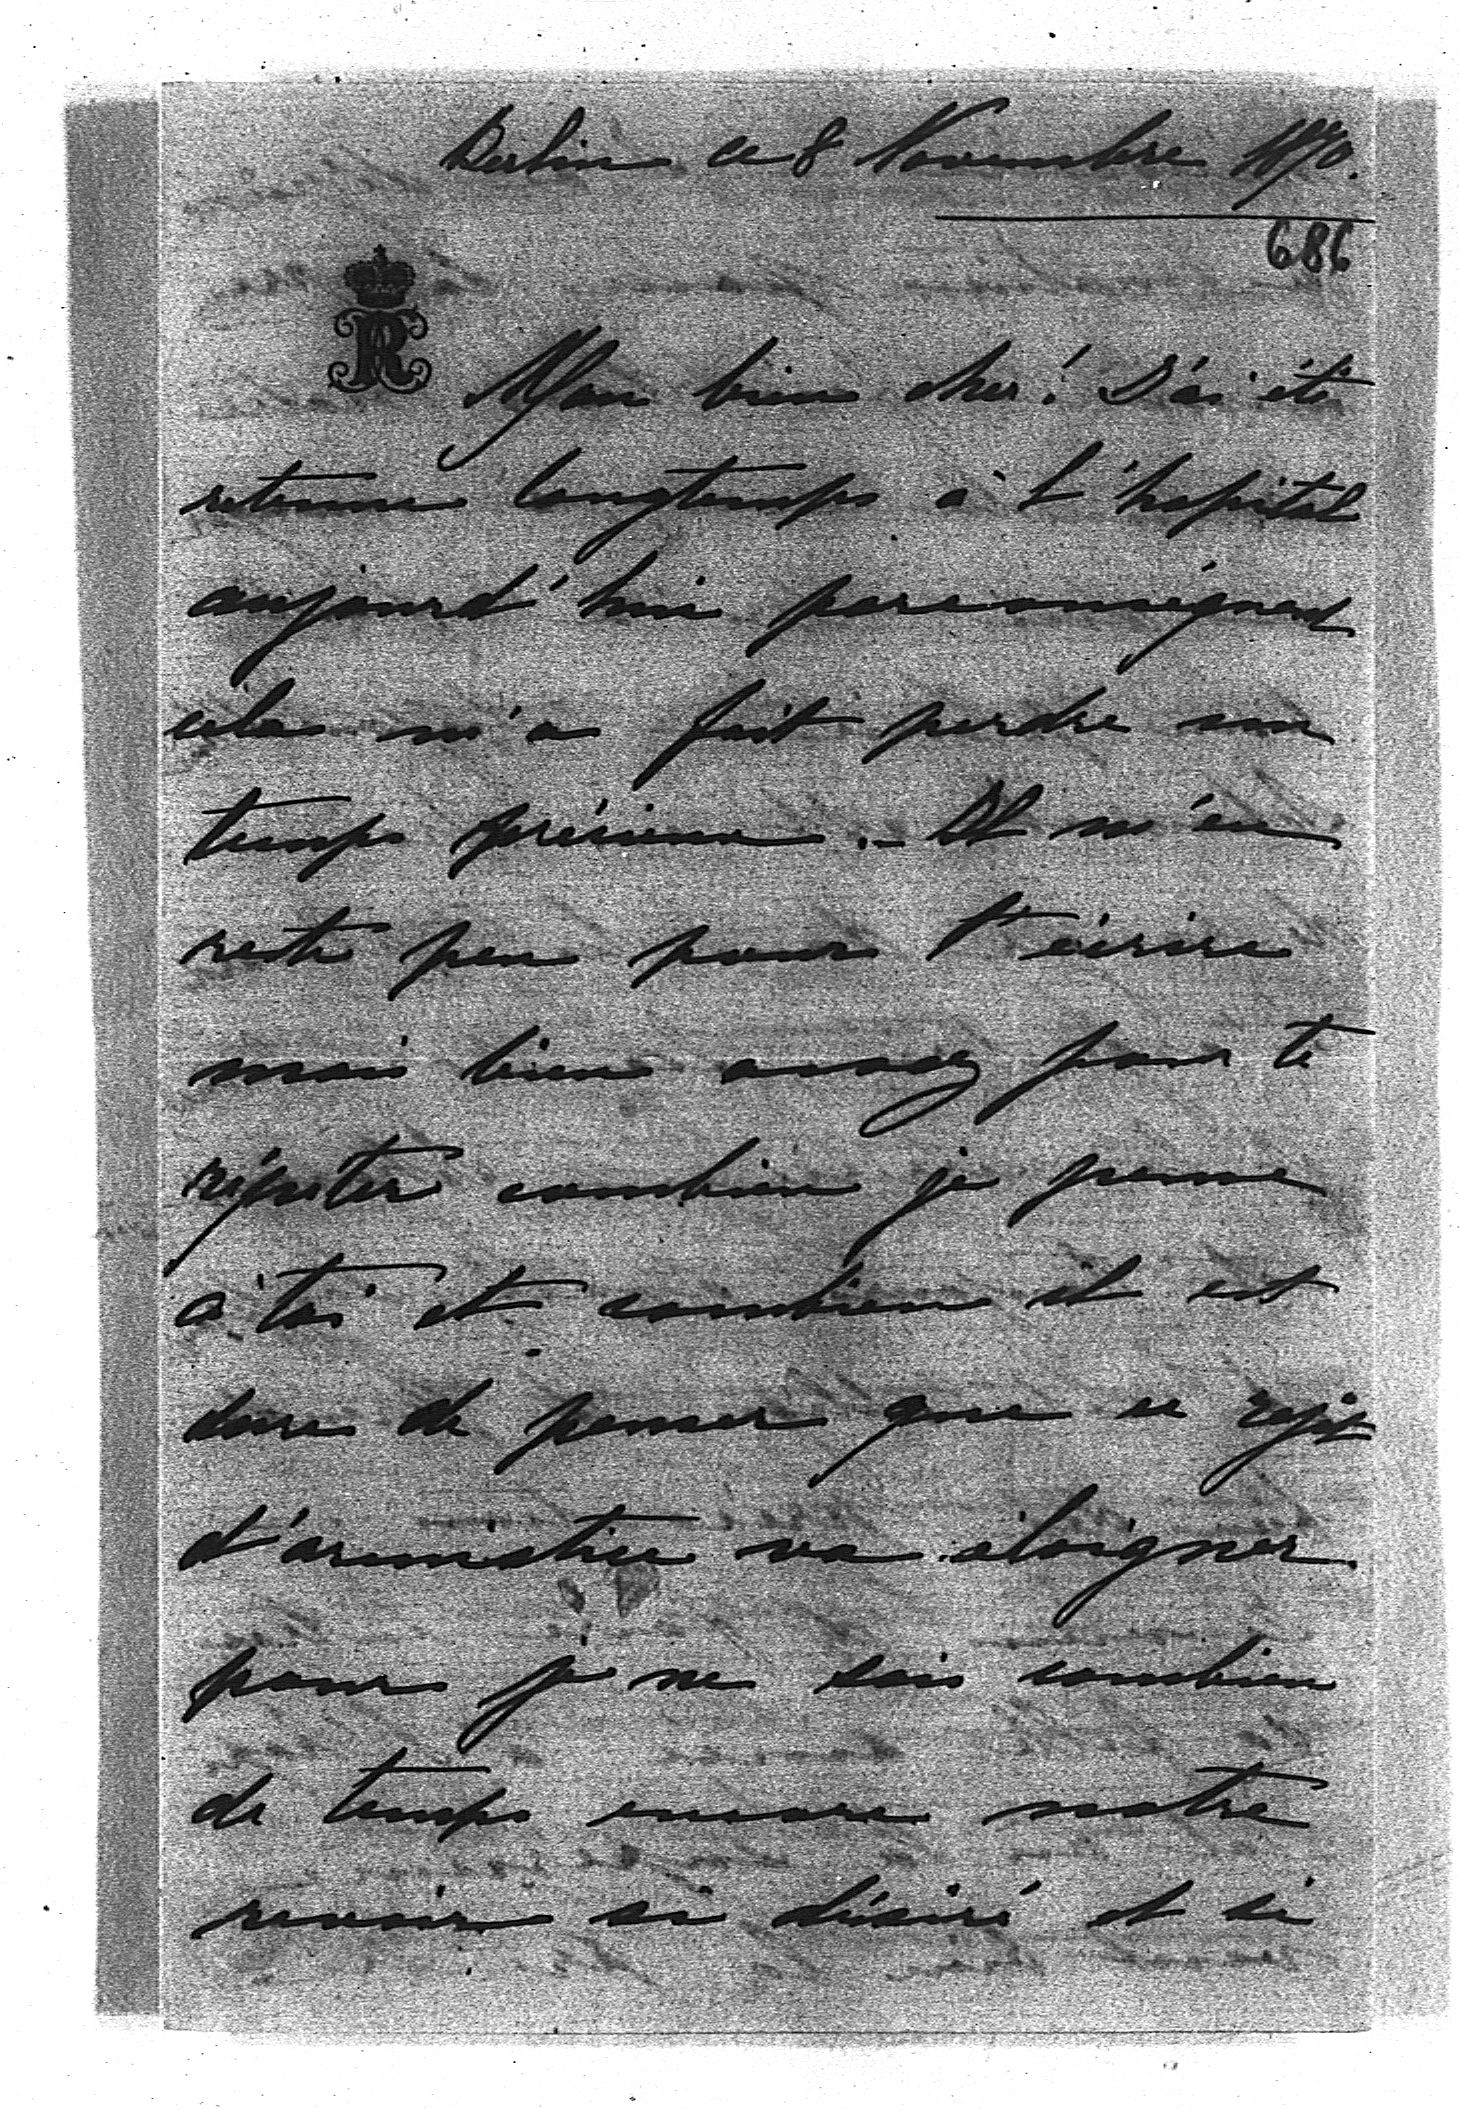 Berlin ce 8 Novembre 1870.
686
R
Mon bien cher! J'ai été
retenue longtemps à l'hopital
aujourd'hui par conséquent
cela m'a fait perdre un
temps précieux. - Il m'en
reste peu pour t'écrire
mais bien assez pour te
répéter combien je pense
à toi et combien il est
dur de penser que ce rejet
d'armistice va éloigner
pour je ne sais combien
de temps encore notre
revoir si désiré et si